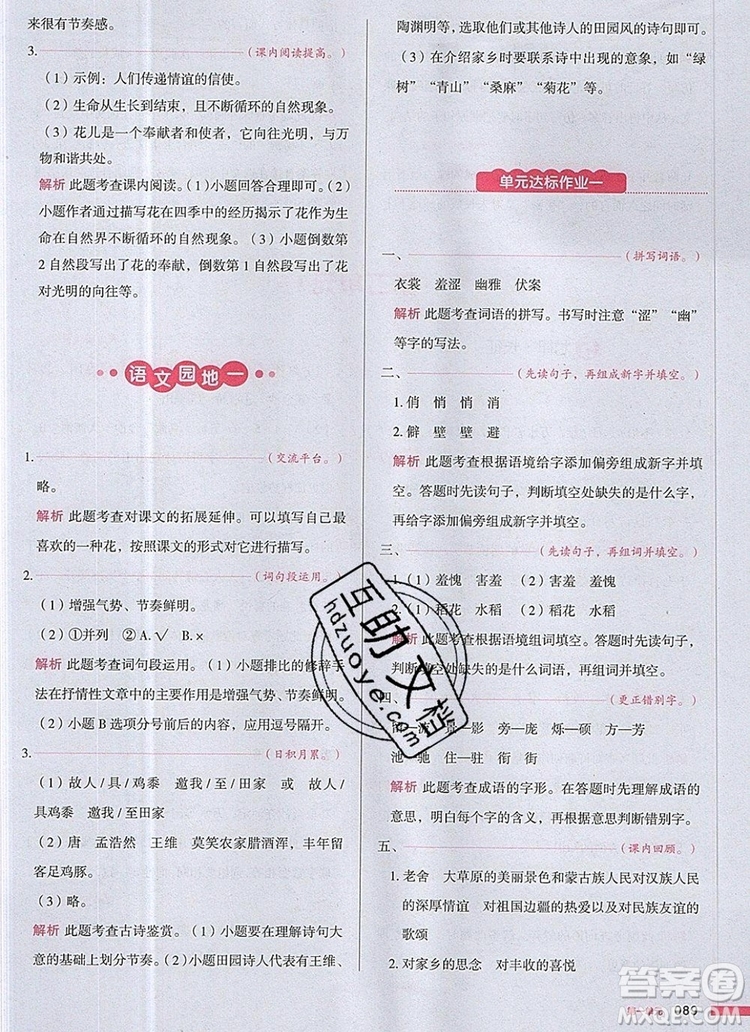 来很有节奏感。
3.（课内阅读提高。）
（1）示例：人们传递情谊的信使。
（2）生命从生长到结束，且不断循环的自然现象。
（3）花儿是一个奉献者和使者，它向往光明，与万
物和谐共处。
解析 此题考查课内阅读。（1）小题回答合理即可。（2）
小题作者通过描写花在四季中的经历揭示了花的生
命在自然界不断循环的自然现象。（3）小题倒数第
2 自然段写出了花的奉献，倒数第 1 自然段写出了花
对光明的向往等。
语文园地一
1.（交流平台。）
略。
解析 此题考查对课文的拓展延伸。可以填写自己最
喜欢的一种花，按照课文的形式对它进行描写。
2.（词句段运用。）
（1）增强气势、节奏鲜明。
（2）①并列 ②A.√ B.×
解析 此题考查词句段运用。（1）小题排比的修辞手
法在抒情性文章中的主要作用是增强气势、节奏鲜明。
（2）小题 B 选项分号前后的内容，应用逗号隔开。
3.（日积月累。）
（1）故人/具/鸡黍 邀我/至/田家 或 故人/
具鸡黍 邀我/至田家
（2）唐 孟浩然 王维 莫笑农家腊酒浑，丰年留
客足鸡豚。
（3）略。
解析 此题考查古诗鉴赏。（1）小题要在理解诗句大
意的基础上划分节奏。（2）小题田园诗人代表有王维、
陶渊明等，填写出他们或其他诗人的田园风的诗句即可。
（3）在介绍家乡时要联系诗中出现的意象，如“绿
树”“青山”“桑麻”“菊花”等。
单元达标作业一
一、（拼写词语。）
衣裳 羞涩 幽雅 伏案
解析 此题考查词语的拼写。书写时注意“涩”“幽”
等字的写法。
二、（先读句子，再组成新字并填空。）
1. 俏 悄 悄 消
2. 僻 壁 壁 避
解析 此题考查根据语境给字添加偏旁组成新字并填
空。答题时先读句子，判断填空处缺失的是什么字，
再给字添加偏旁组成新字并填空。
三、（先读句子，再组词并填空。）
1.（1）羞愧 害羞 （2）害羞 羞愧
2.（1）稻花 水稻 （2）稻花 水稻
解析 此题考查根据语境组词并填空。答题时先读句子，
判断填空处缺失的是什么词语，再组词并填空。
四、（更正错别字。）
流 景—影 旁—庞 烁—硕 方—芳
池—驰 住—驻 衔—街
解析 此题考查成语的字形。在答题时先理解成语的
意思，明白每个字的含义，从而判断出错别字。
五、（课内回顾。）
1. 老舍 大草原的美丽景色和蒙古族人民对汉族人民
的深厚情谊 对祖国边疆的热爱 对民族友谊的
歌颂
2. 对家乡的思念 对丰收的喜悦
互助文档
hdzuoye.com
答案圈
MXQE.COM
089